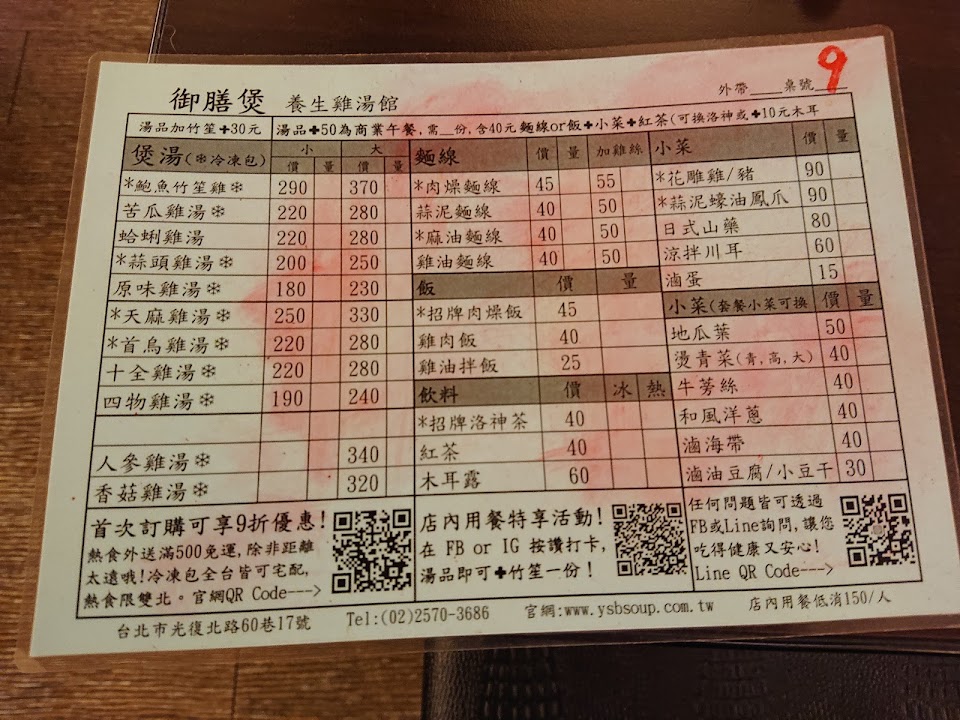 御膳煲 養生雞湯館
外帶____桌號____
9
湯品加竹笙✚30元
湯品✚50為商業午餐,需__份,含40元麵線or飯✚小菜✚紅茶(可換洛神或✚10元木耳
煲湯(❄冷凍包) 小 大
價 量 價 量
*鮑魚竹笙雞❄ 290 370
苦瓜雞湯❄ 220 280
蛤蜊雞湯 220 280
*蒜頭雞湯❄ 200 250
原味雞湯❄ 180 230
*天麻雞湯❄ 250 330
*首烏雞湯❄ 220 280
十全雞湯❄ 220 280
四物雞湯❄ 190 240
人參雞湯❄ 340
香菇雞湯❄ 320
麵線 價 量 加雞絲
*肉燥麵線 45 55
蒜泥麵線 40 50
*麻油麵線 40 50
雞油麵線 40 50
飯 價 量
*招牌肉燥飯 45
雞肉飯 40
雞油拌飯 25
飲料 價 冰 熱
*招牌洛神茶 40
紅茶 40
木耳露 60
小菜 價 量
*花雕雞/豬 90
*蒜泥蠔油鳳爪 90
日式山藥 80
涼拌川耳 60
滷蛋 15
小菜(套餐小菜可換 價 量
地瓜葉 50
燙青菜(青,高,大) 40
牛蒡絲 40
和風洋蔥 40
滷海帶 40
滷油豆腐/小豆干 30
首次訂購可享9折優惠!
熱食外送滿500免運,除非距離
太遠哦!冷凍包全台皆可宅配,
熱食限雙北。官網QR Code--->
店內用餐特享活動!
在 FB or IG 按讚打卡,
湯品即可✚竹笙一份!
任何問題皆可透過
FB或Line詢問,讓您
吃得健康又安心!
Line QR Code--->
台北市光復北路60巷17號 Tel:(02)2570-3686 官網:www.ysbsoup.com.tw 店內用餐低消150/人